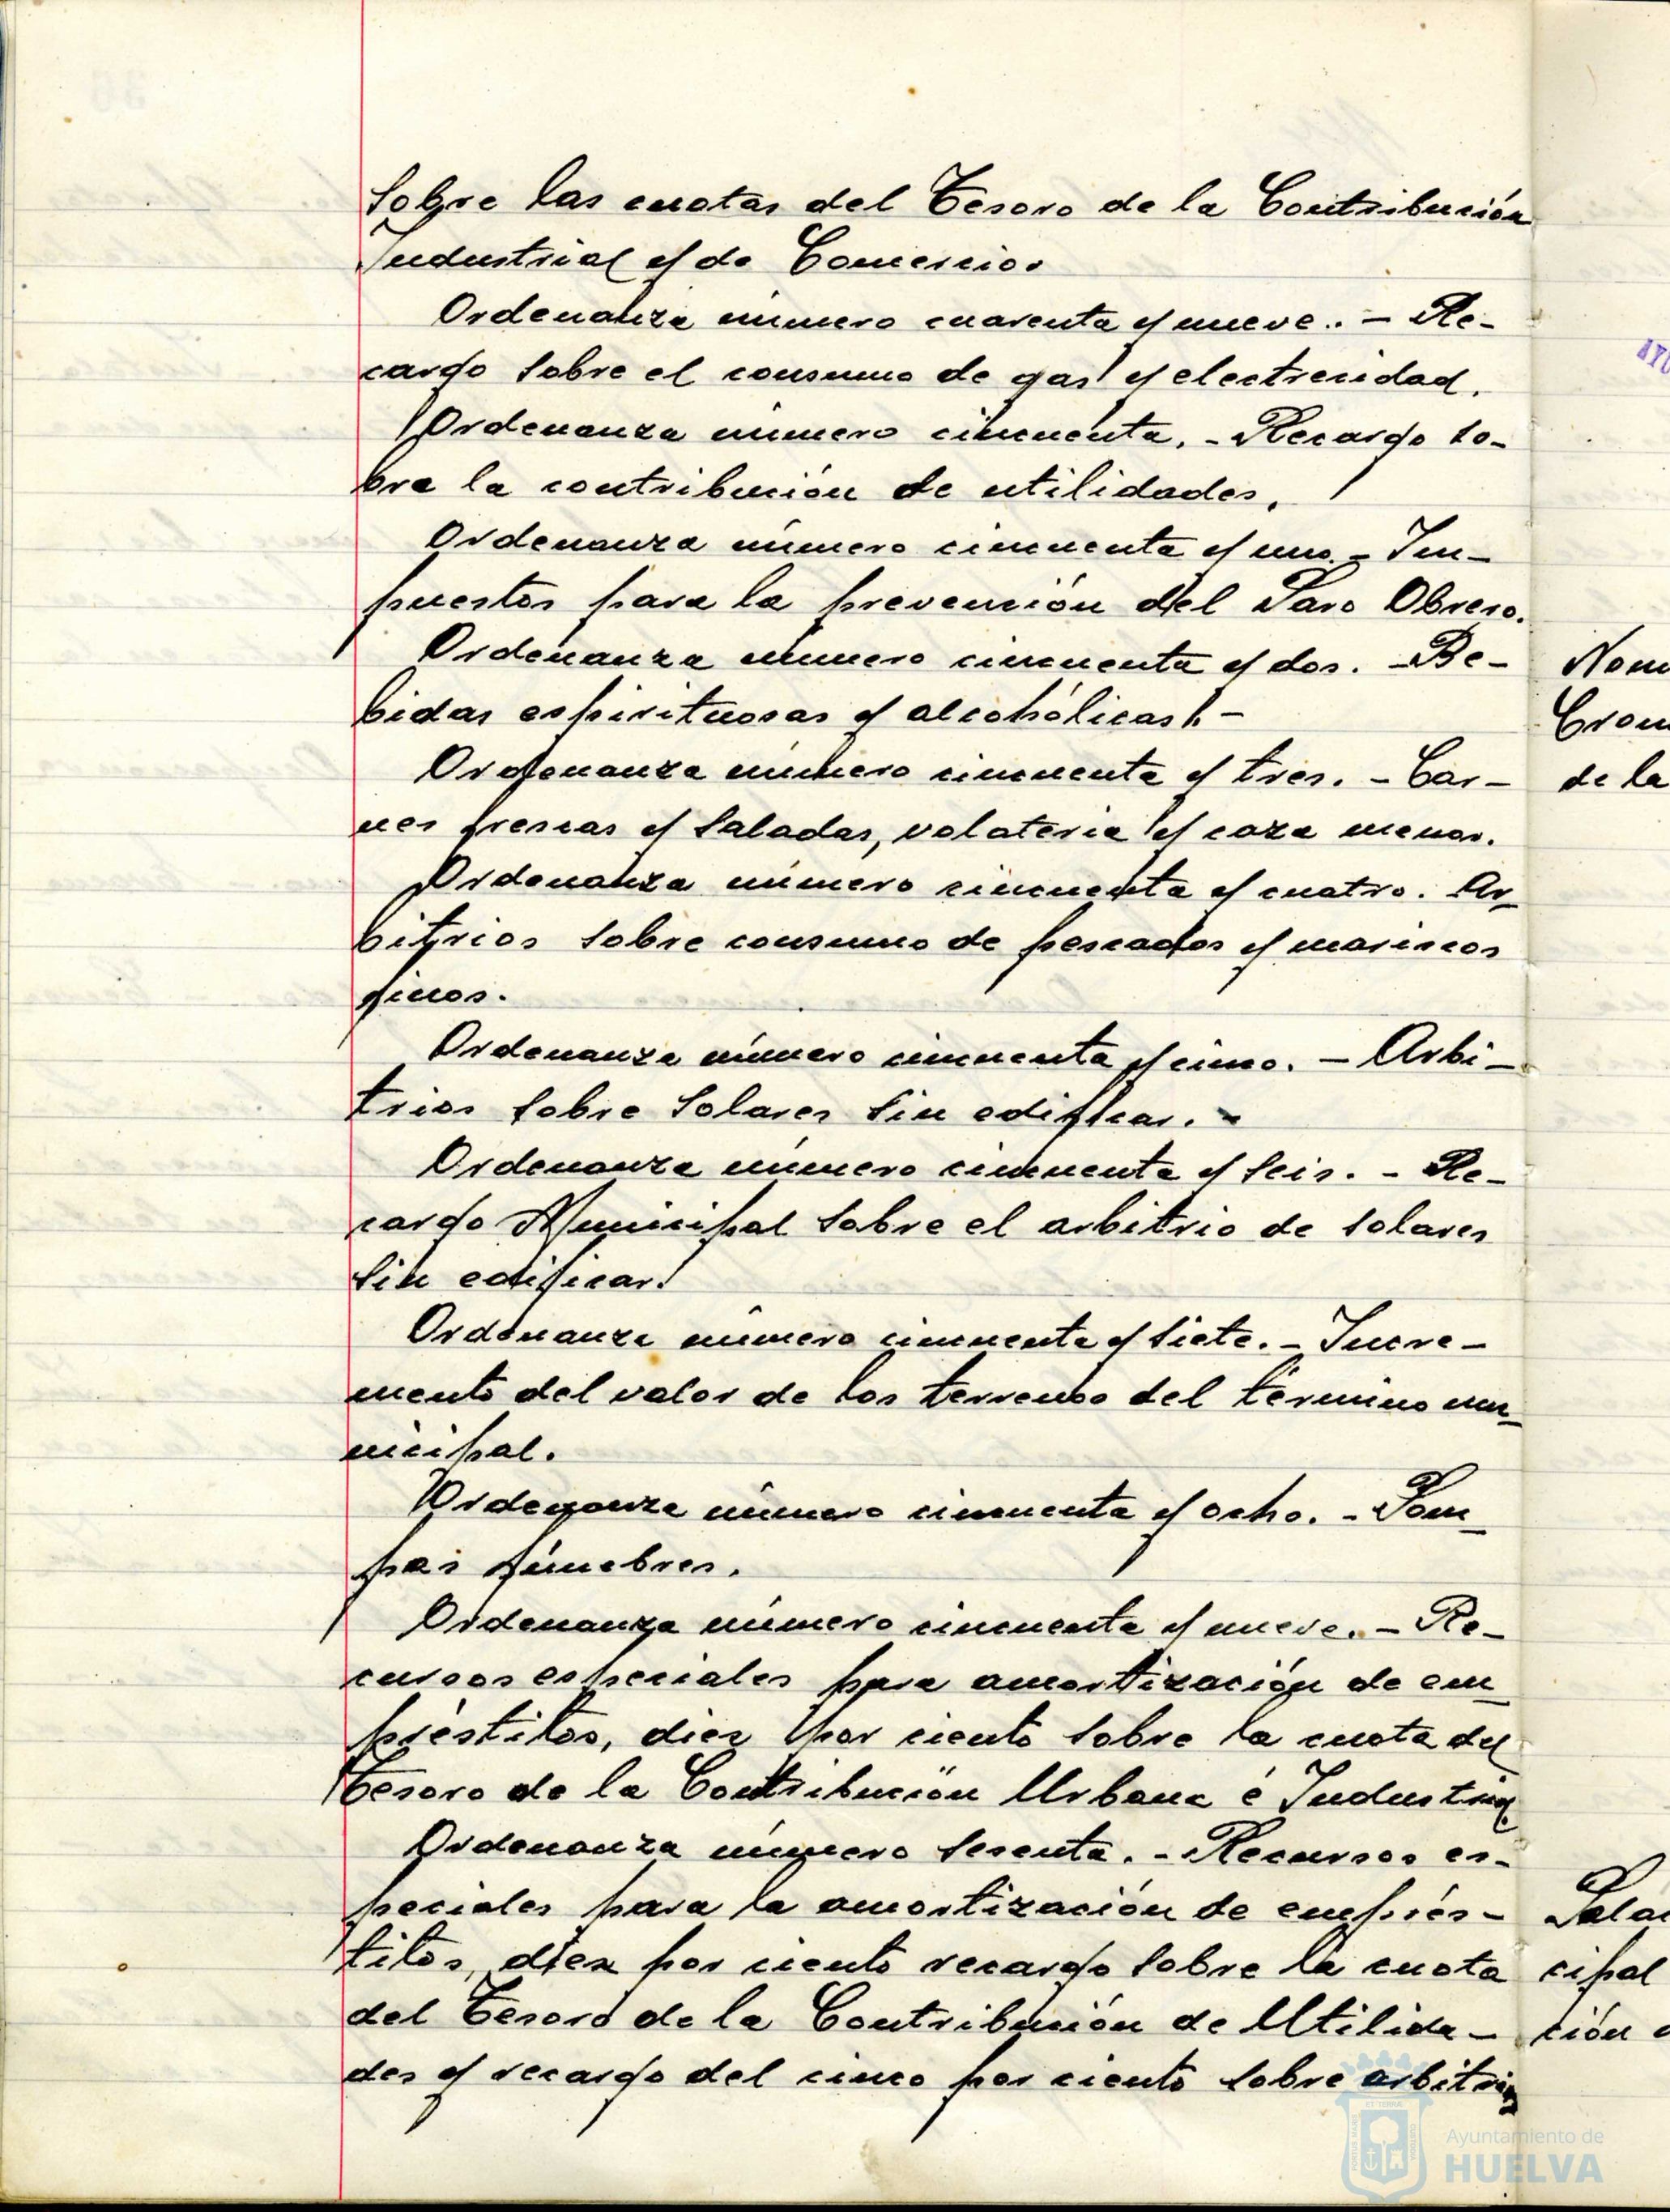 sobre las cuotas del Tesoro de la Contribución
Industrial y de Comercio.
Ordenanza número cuarenta y nueve.. - Re-
cargo sobre el consumo de gas y electricidad.
Ordenanza número cincuenta. - Recargo so-
bre la contribución de utilidades.
Ordenanza número cincuenta y uno - Im-
puestos para la prevención del Paro Obrero.
Ordenanza número cincuenta y dos. - Be-
bidas espirituosas y alcohólicas. -
Ordenanza número cincuenta y tres. - Car-
nes frescas y saladas, volatería y caza menor.
Ordenanza número cincuenta y cuatro. Ar-
bitrios sobre consumo de pescados y mariscos
finos.
Ordenanza número cincuenta y cinco. - Arbi-
trios sobre solares sin edificar. -
Ordenanza número cincuenta y seis. - Re-
cargo Municipal sobre el arbitrio de solares
sin edificar.
Ordenanza número cincuenta y siete. - Incre-
mento del valor de los terrenos del término mu-
nicipal.
Ordenanza número cincuenta y ocho. - Pom-
pas fúnebres.
Ordenanza número cincuenta y nueve. - Re-
cursos especiales para amortización de em-
préstitos, diez por ciento sobre la cuota del
Tesoro de la Contribución Urbana é Industrial
Ordenanza número sesenta. - Recursos es-
peciales para la amortización de emprés-
titos, diez por ciento recargo sobre la cuota
del Tesoro de la Contribución de Utilida-
des y recargo del cinco por ciento sobre arbitrios
Nom
Crom
de la
Salar
cipal
ción
Ayuntamiento de
HUELVA